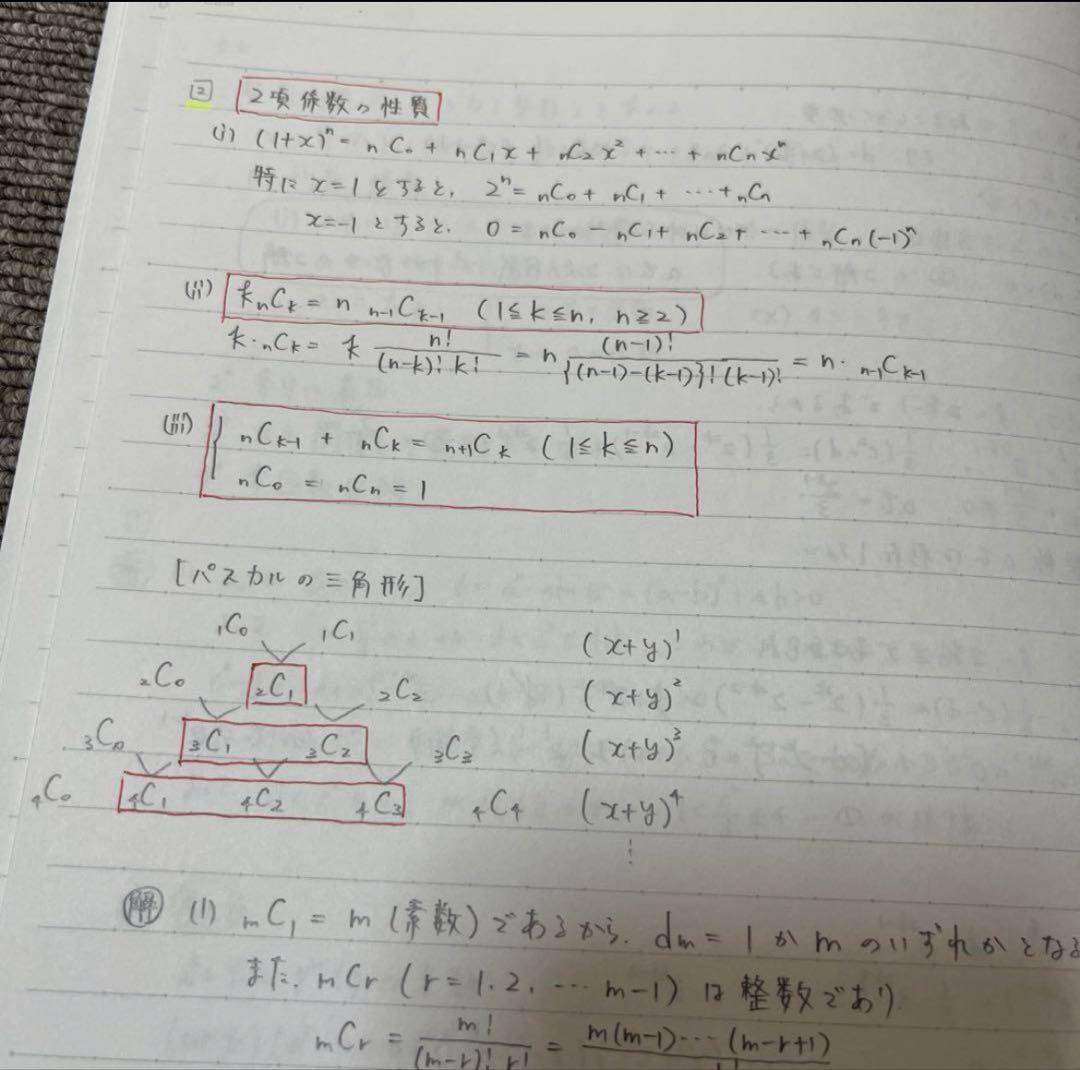 2 2項係数の性質
(i) (1+x)ⁿ = ₙC₀ + ₙC₁x + ₙC₂x² + … + ₙCₙxⁿ
特に x=1 とすると, 2ⁿ = ₙC₀ + ₙC₁ + … + ₙCₙ
x=-1 とすると, 0 = ₙC₀ - ₙC₁ + ₙC₂ + … + ₙCₙ(-1)ⁿ
(ii) k ₙCₖ = n ₙ₋₁Cₖ₋₁ (1≦k≦n, n≧2)
k・ₙCₖ = k n!/((n-k)! k!) = n (n-1)!/({(n-1)-(k-1)}! (k-1)!) = n・ₙ₋₁Cₖ₋₁
(iii) { ₙCₖ₋₁ + ₙCₖ = ₙ₊₁Cₖ (1≦k≦n)
ₙC₀ = ₙCₙ = 1
[パスカルの三角形]
₁C₀ ₁C₁ (x+y)¹
₂C₀ ₂C₁ ₂C₂ (x+y)²
₃C₀ ₃C₁ ₃C₂ ₃C₃ (x+y)³
₄C₀ ₄C₁ ₄C₂ ₄C₃ ₄C₄ (x+y)⁴
⋮
解 (1) ₘC₁ = m (素数) であるから, dm = 1 か m のいずれかとなる
また, ₘCᵣ (r=1, 2, … m-1) は整数であり
ₘCᵣ = m!/((m-r)! r!) = m(m-1)…(m-r+1)